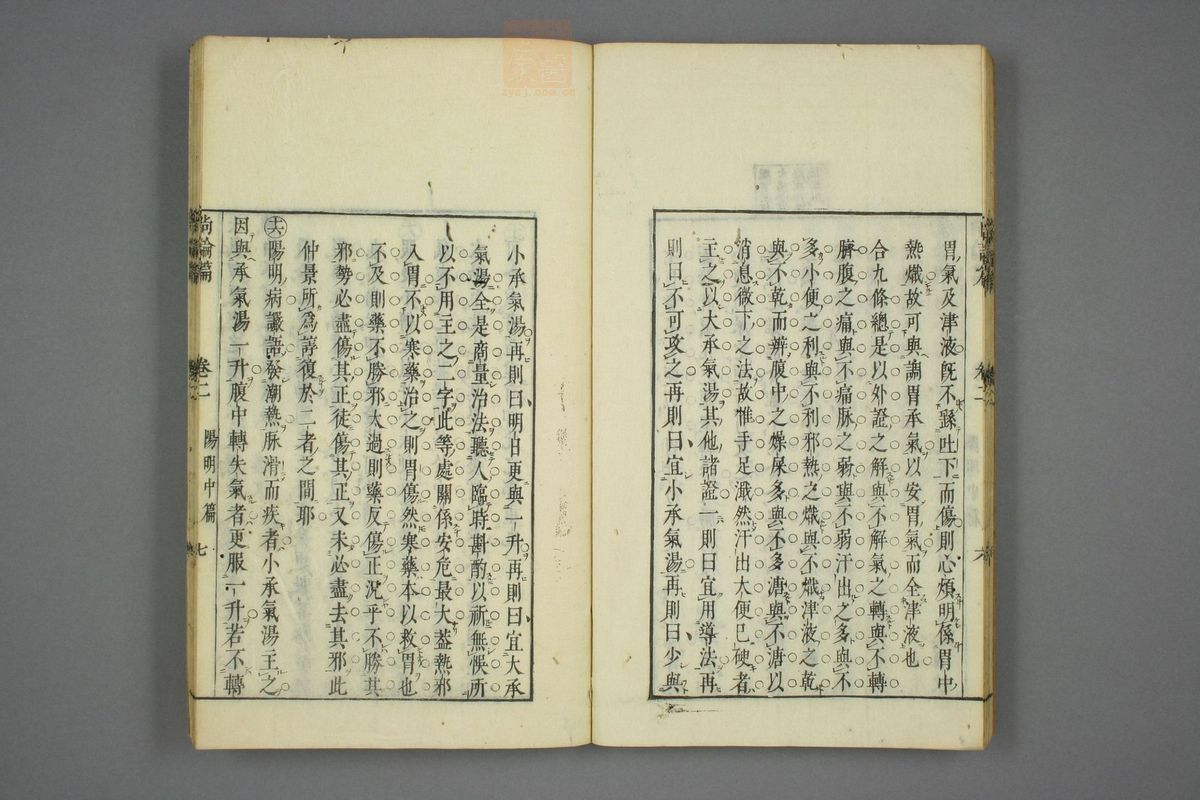 胃氣及津液既不繇吐下而傷則心煩明係胃中
熱熾故可與調胃承氣以安胃氣而全津液也
合九條總是以外證之解與不解氣之轉與不轉
臍腹之痛與不痛脉之弱與不弱汗出之多與不
多小便之利與不利邪熱之熾與不熾津液之乾
與不乾而辨腹中之燥屎多與不多溏與不溏以
消息微下之法故惟手足濈然汗出大便已硬者
主之以大承氣湯其他諸證一則曰宜用導法再
則曰不可攻之再則曰宜小承氣湯再則曰少與
小承氣湯再則曰明日更與一升再則曰宜大承
氣湯全是商量治法聽人臨時斟酌以祈無悞所
以不用主之二字此等處關係安危最大葢熱邪
入胃不以寒藥治之則胃傷然寒藥本以救胃也
不及則藥不勝邪太過則藥反傷正況乎不勝其
邪勢必盡傷其正徒傷其正又未必盡去其邪此
仲景所爲諄復於二者之間耶
陽明病讝語發潮熱脉滑而疾者小承氣湯主之
因與承氣湯一升腹中轉失氣者更服一升若不轉
尚論篇 卷二 陽明中篇 七
zysj.com.cn